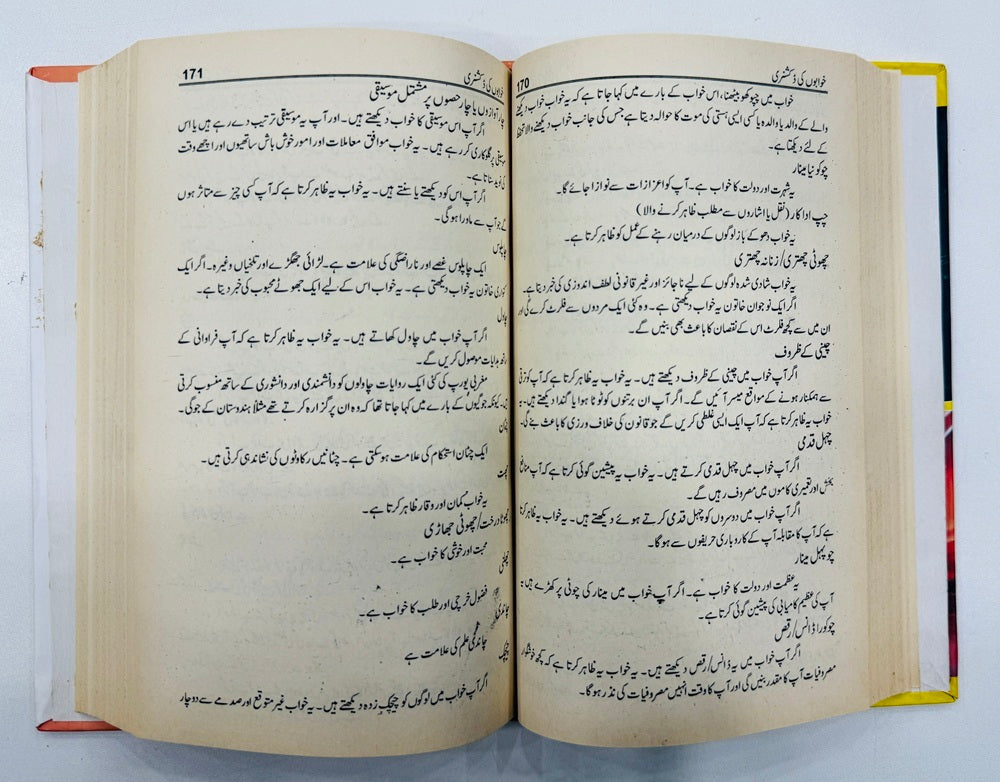 خوابوں کی ڈکشنری
170
خواب میں چپو کھو بیٹھنا، اس خواب کے بارے میں کہا جاتا ہے کہ یہ خواب خواب دیکھنے
والے کے والد یا والدہ یا کسی ایسی ہستی کی موت کا حوالہ دیتا ہے جس کی جانب خواب دیکھنے والا تحفظ
کے لئے دیکھتا ہے۔
چوکونیا مینار
یہ شہرت اور دولت کا خواب ہے۔ آپ کو اعزازات سے نوازا جائے گا۔
چپ اداکار (نقل یا اشاروں سے مطلب ظاہر کرنے والا)
یہ خواب دھوکے باز لوگوں کے درمیان رہنے کے عمل کو ظاہر کرتا ہے۔
چھوٹی چھتری/زنانہ چھتری
یہ خواب شادی شدہ لوگوں کے لیے ناجائز اور غیر قانونی لطف اندوزی کی خبر دیتا ہے۔
اگر ایک نوجوان خاتون یہ خواب دیکھتی ہے۔ وہ کئی ایک مردوں سے فلرٹ کرے گی اور
ان میں سے کچھ فلرٹ اس کے نقصان کا باعث بھی بنیں گے۔
چینی کے ظروف
اگر آپ خواب میں چینی کے ظروف دیکھتے ہیں۔ یہ خواب یہ ظاہر کرتا ہے کہ آپ کو ترقی
سے ہمکنار ہونے کے مواقع میسر آئیں گے۔ اگر آپ ان برتنوں کو ٹوٹا ہوا یا گندا دیکھتے ہیں۔ یہ
خواب یہ ظاہر کرتا ہے کہ آپ ایک ایسی غلطی کریں گے جو قانون کی خلاف ورزی کا باعث بنے گی۔
چہل قدمی
اگر آپ خواب میں چہل قدمی کرتے ہیں۔ یہ خواب یہ پیشین گوئی کرتا ہے کہ آپ منافع
بخش اور تعمیری کاموں میں مصروف رہیں گے۔
اگر آپ خواب میں دوسروں کو چہل قدمی کرتے ہوئے دیکھتے ہیں۔ یہ خواب یہ ظاہر کرتا
ہے کہ آپ کا مقابلہ آپ کے کاروباری حریفوں سے ہوگا۔
چوپہل مینار
یہ عظمت اور دولت کا خواب ہے۔ اگر آپ خواب میں مینار کی چوٹی پر کھڑے ہیں یہ
آپ کی عظیم کامیابی کی پیشین گوئی کرتا ہے۔
چوکورا ڈانس/رقص
اگر آپ خواب میں یہ ڈانس/رقص دیکھتے ہیں۔ یہ خواب یہ ظاہر کرتا ہے کہ کچھ خوشگوار
مصروفیات آپ کا مقدر بنیں گی اور آپ کا وقت انہیں مصروفیات کی نذر ہوگا۔
خوابوں کی ڈکشنری
171
چار آوازوں یا چار حصوں پر مشتمل موسیقی
اگر آپ اس موسیقی کا خواب دیکھتے ہیں۔ اور آپ یہ موسیقی ترتیب دے رہے ہیں یا اس
موسیقی پر گلوکاری کر رہے ہیں۔ یہ خواب موافق معاملات اور امور خوش باش ساتھیوں اور اچھے وقت
کی نوید سناتا ہے۔
اگر آپ اس کو دیکھتے یا سنتے ہیں۔ یہ خواب یہ ظاہر کرتا ہے کہ آپ کسی چیز سے متاثر ہوں
گے جو آپ سے ماورا ہوگی۔
چاپلوس
ایک چاپلوس غصے اور ناراضگی کی علامت ہے۔ لڑائی جھگڑے اور تلخیاں وغیرہ۔ اگر ایک
کنواری خاتون یہ خواب دیکھتی ہے۔ یہ خواب اس کے لیے ایک جھوٹے محبوب کی خبر دیتا ہے۔
چاول
اگر آپ خواب میں چاول کھاتے ہیں۔ یہ خواب یہ ظاہر کرتا ہے کہ آپ فراوانی کے
ہدایات موصول کریں گے۔
مغربی یورپ کی کئی ایک روایات چاولوں کو دانشمندی اور دانشوری کے ساتھ منسوب کرتی
ہیں۔ کیونکہ جوگیوں کے بارے میں کہا جاتا تھا کہ وہ ان پر گزارہ کرتے تھے مثلاً ہندوستان کے جوگی۔
چٹان
ایک چٹان استحکام کی علامت ہو سکتی ہے۔ چٹانیں رکاوٹوں کی نشاندہی کرتی ہیں۔
چھت
یہ خواب کمان اور وقار ظاہر کرتا ہے۔
چھوٹا درخت/چھوٹی جھاڑی
محبت اور خوشی کا خواب ہے۔
چھلنی
فضول خرچی اور طلب کا خواب ہے۔
چاندگی
چاندگی علم کی علامت ہے
چیچک
اگر آپ خواب میں لوگوں کو چیچک زدہ دیکھتے ہیں۔ یہ خواب غیر متوقع اور صدمے سے دوچار